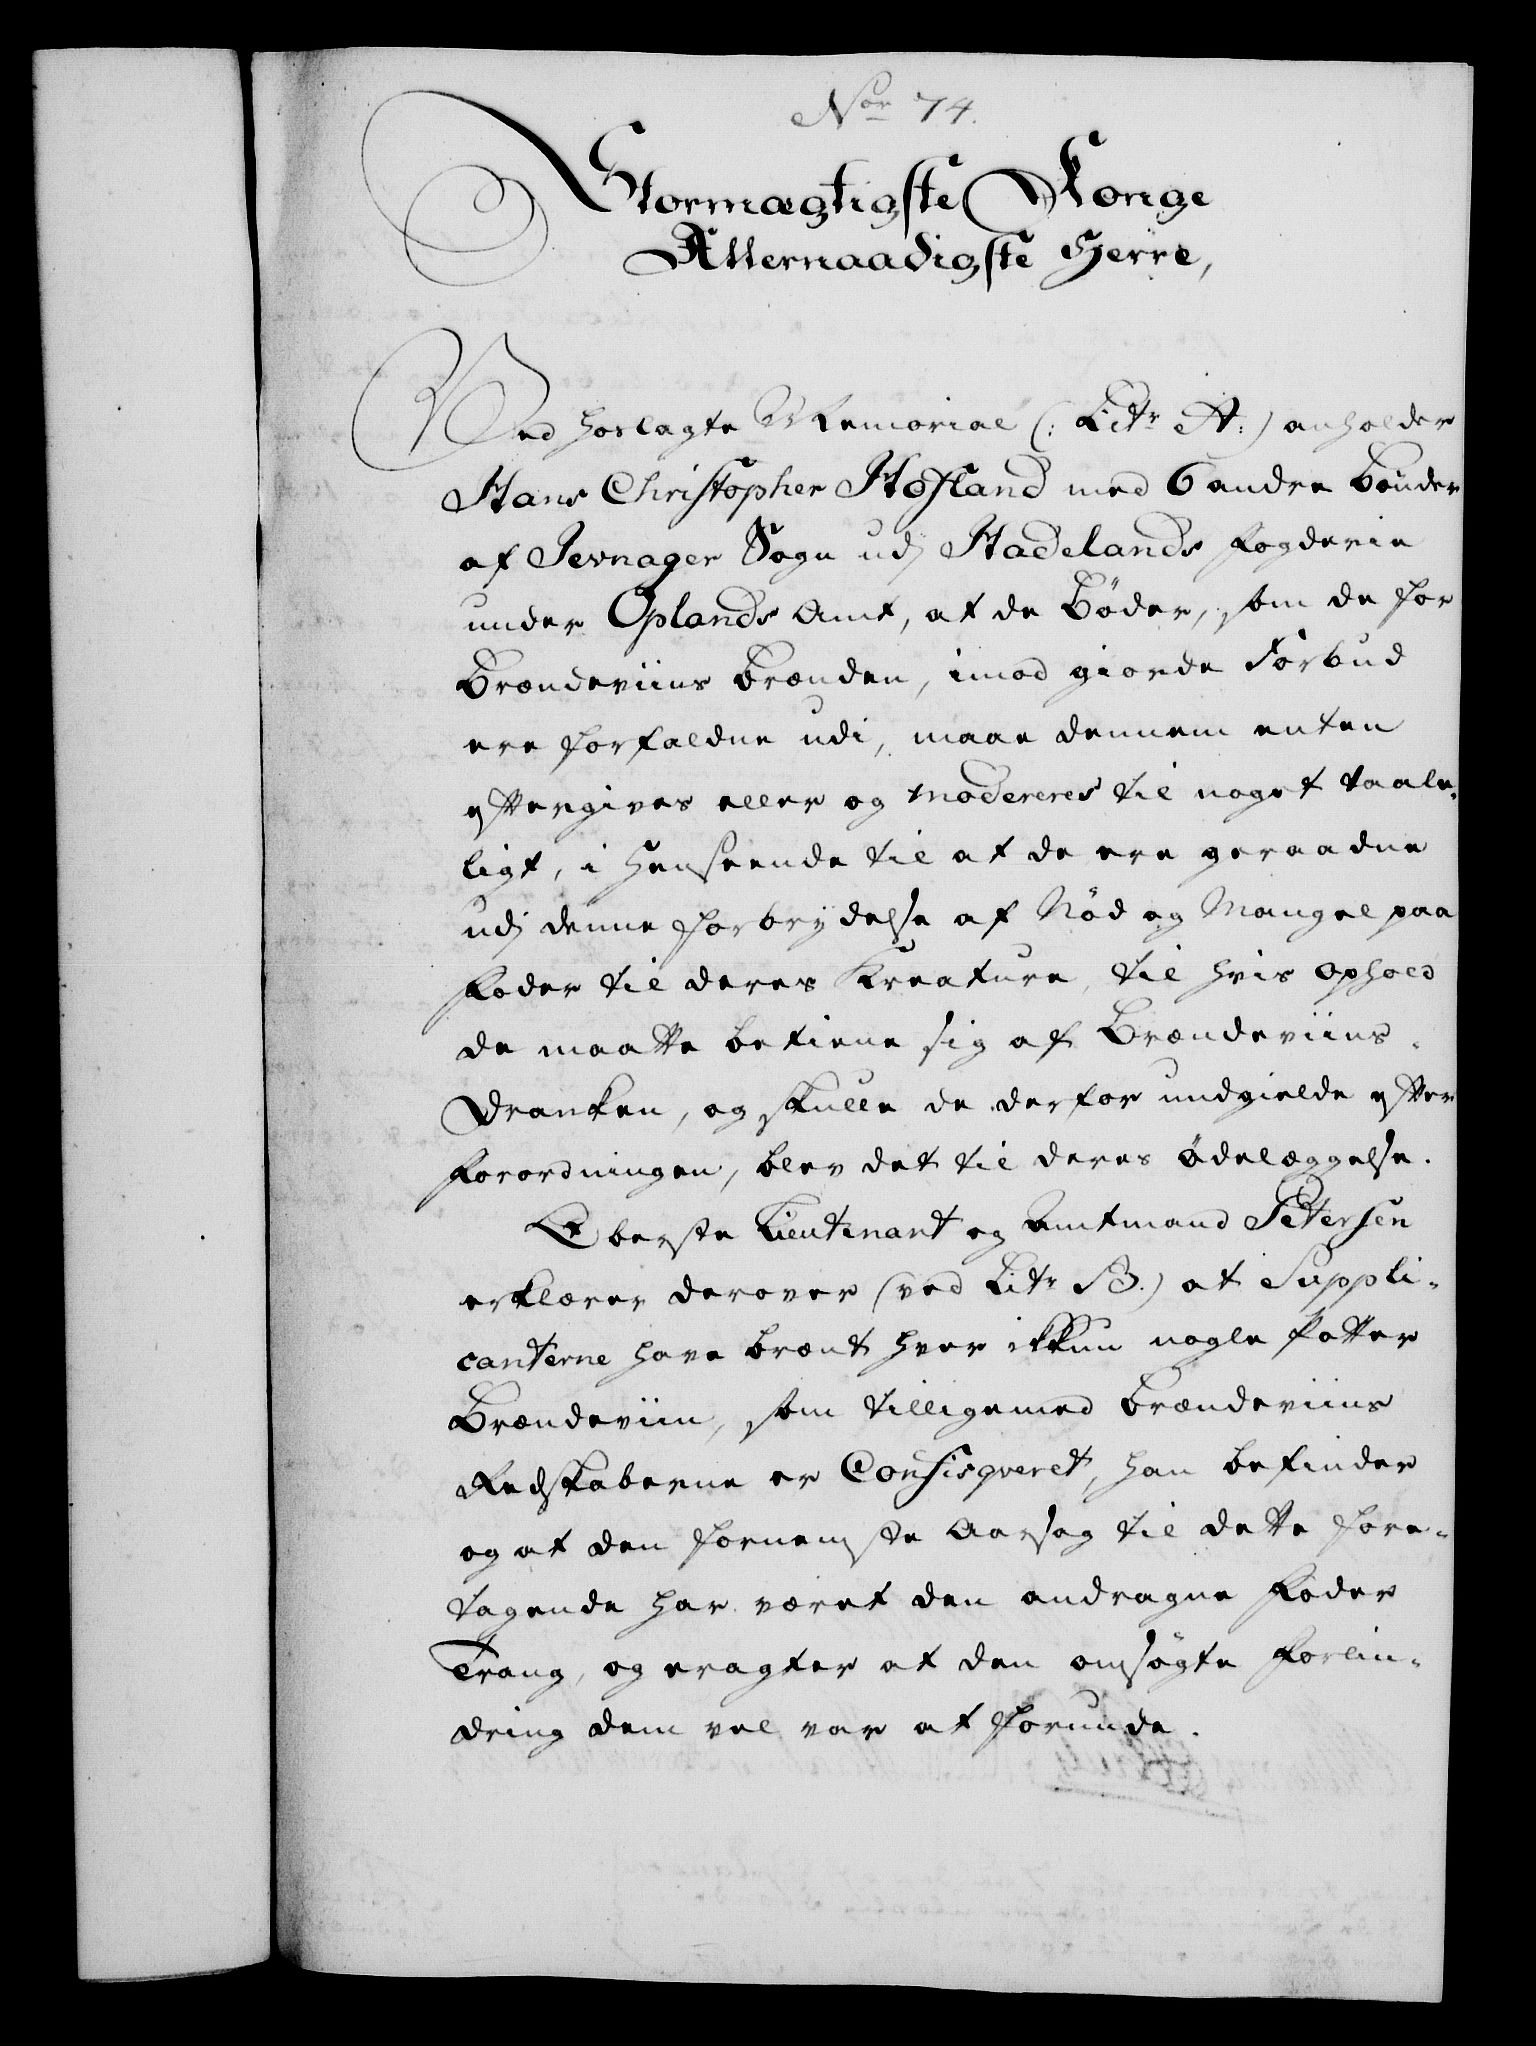 Nor 74.
Stormægtigste Konge
Allernaadigste Herre,
Ved hoslagte Memorial (: Litr A:) anholder
Hans Christopher Hofland med 6 andre Bønder
af Jevnager Sogn udj Hadelands Fogderie
under Oplands Amt, at de Bøder, som de for
Brændeviins Brænden, imod giorde Forbud
ere forfaldne udi, maae dennem enten
eftergives eller og modereres til noget taale-
ligt, i Henseende til at de ere geraadne
udj denne Forbrydelse af Nød og Mangel paa
Foder til deres Kreature, til hvis Ophold
de maatte betiene sig af Brændeviins-
Dranken, og skulle de derfor undgielde efter
Forordningen, blev det til deres Ødelæggelse.
Oberste Lieutenant og Amtmand Petersen
erklærer derover (ved Litr B.) at Suppli-
canterne have brændt hver ikkun nogle Potter
Brændeviin, som tilligemed Brændeviins
Redskaberne er Confisqveret, han befinder
og at den fornemste Aarsag til dette Fore-
tagende har været den andragne Foder
Trang, og eragter at den omsøgte Forlin-
dring dem vel var at forunde.